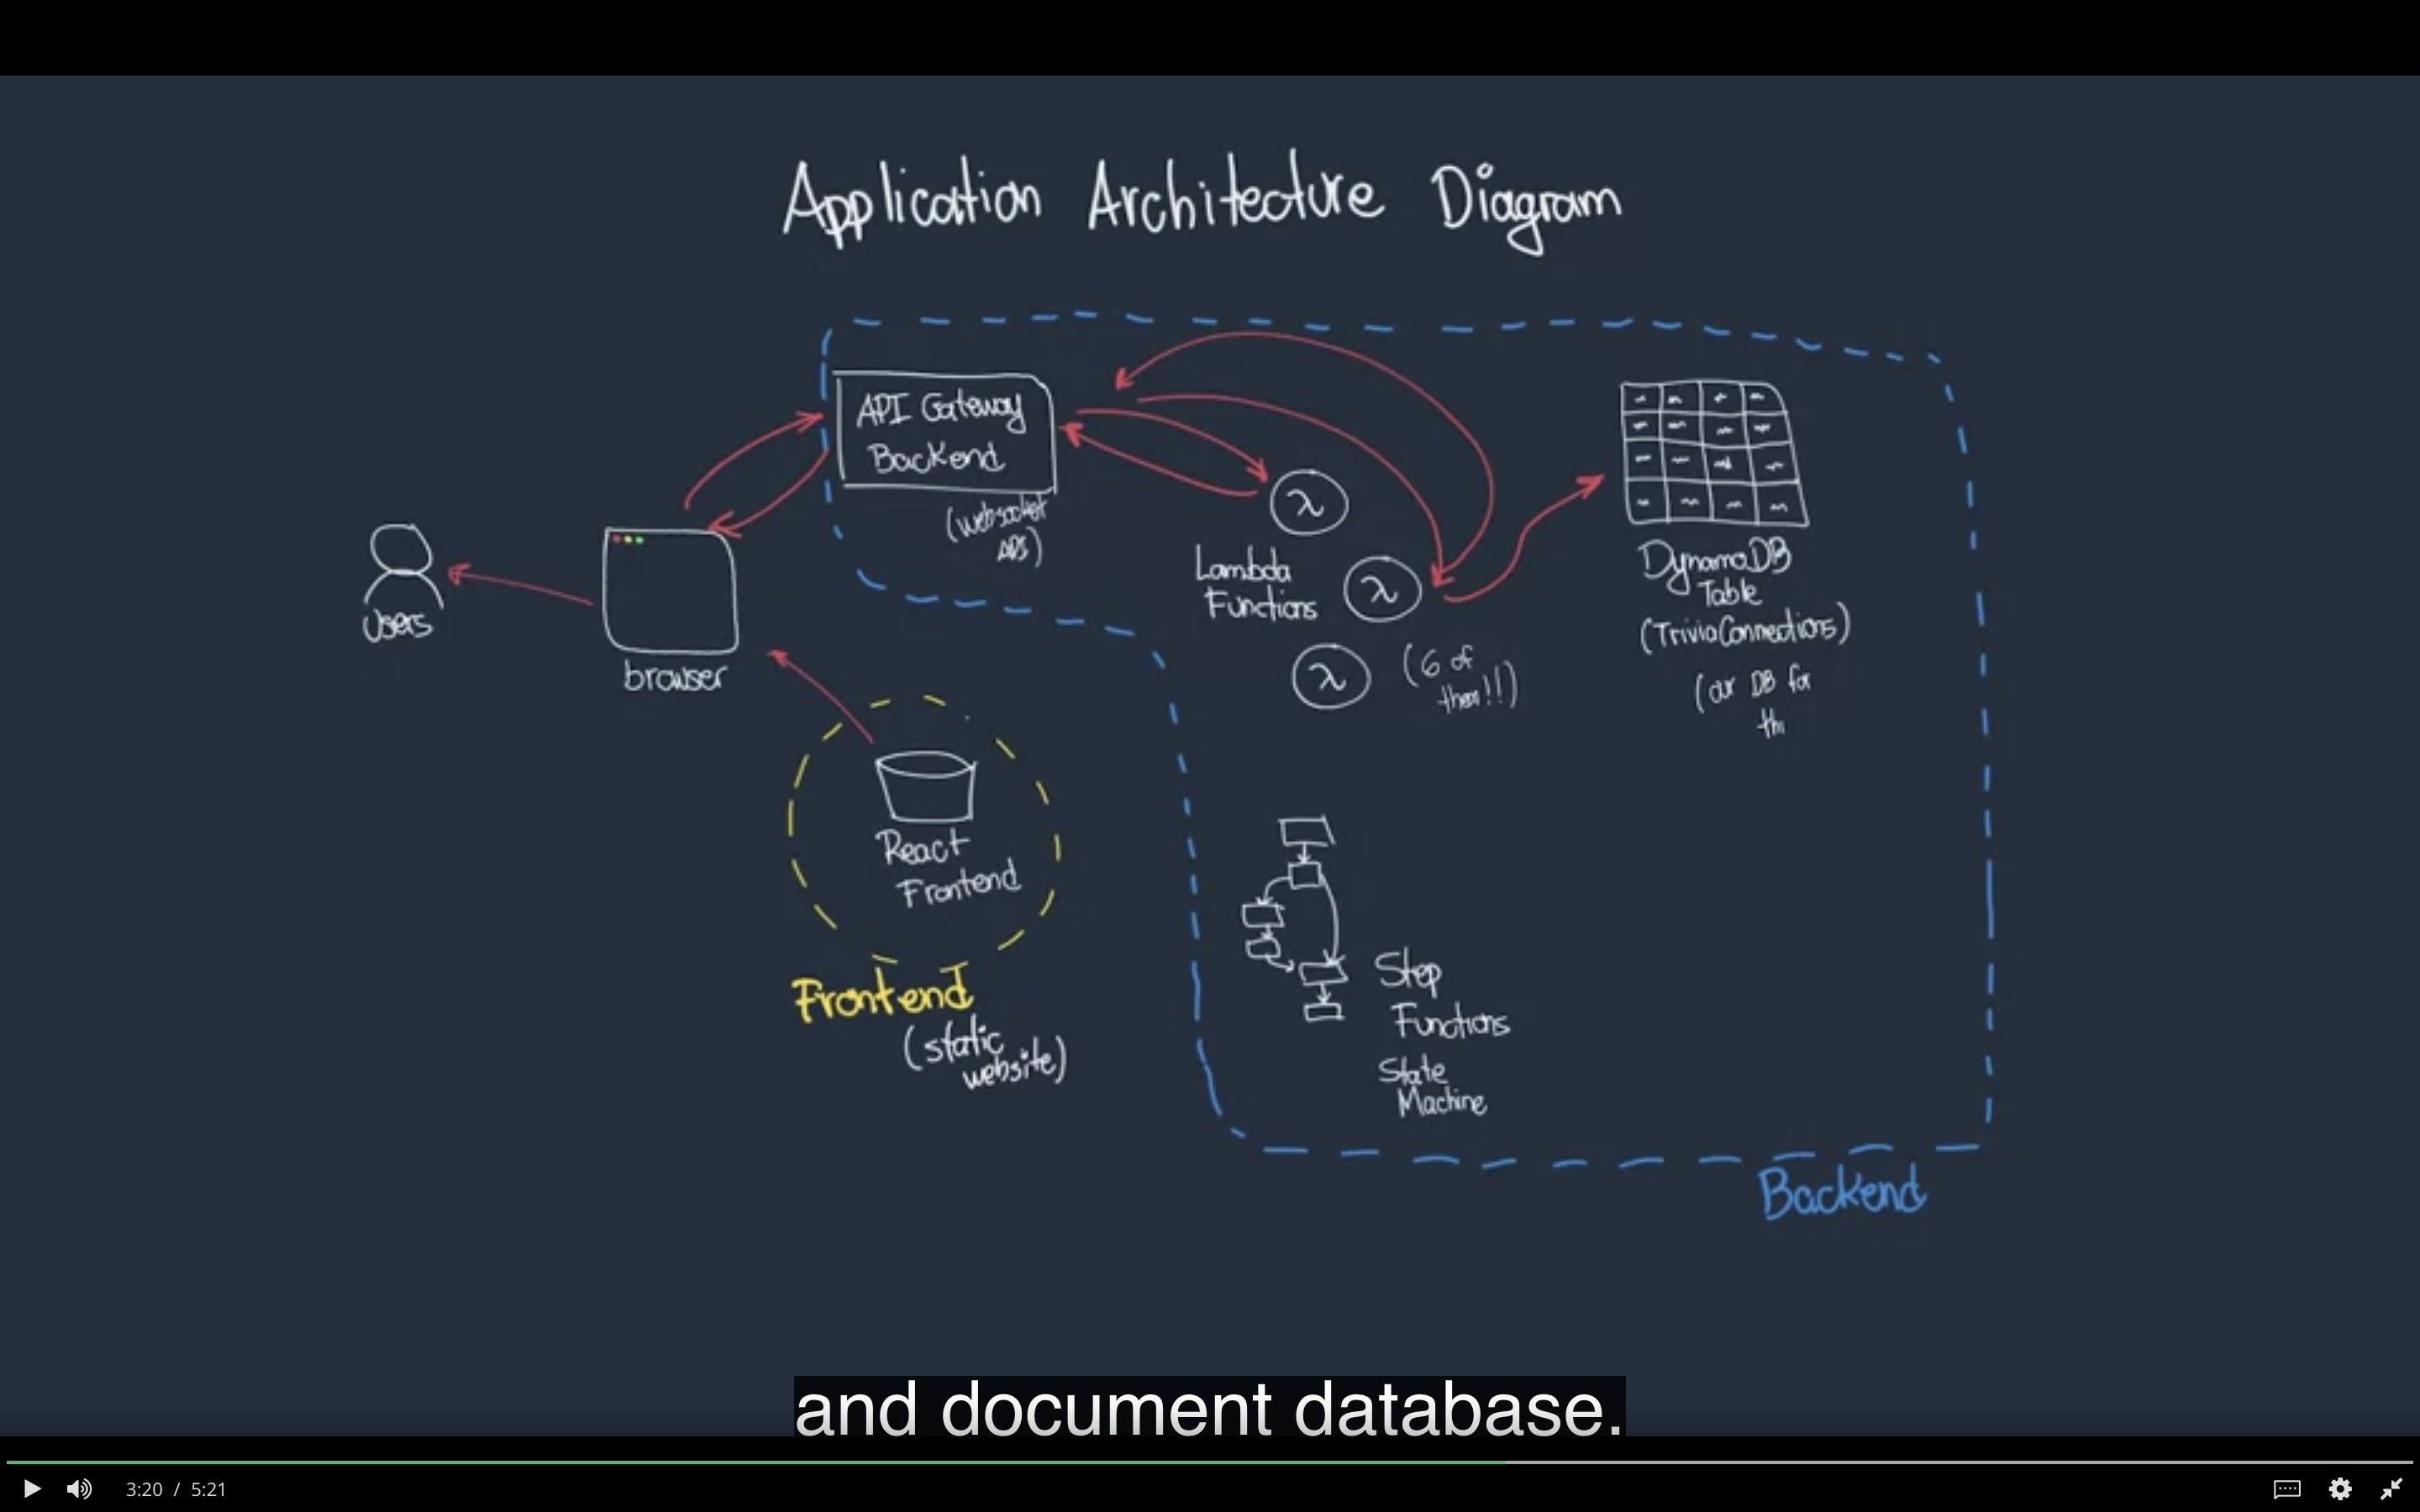 Application Architecture Diagram
API Gateway
Backend
(websocket
Users
browser
Lambda
Functions
(6 of
them!!)
DynamoDB
Table
(TriviaConnections)
(our DB for
thi
React
Frontend
Frontend
(static
website)
Step
Functions
State
Machine
Backend
and document database.
3:20 / 5:21